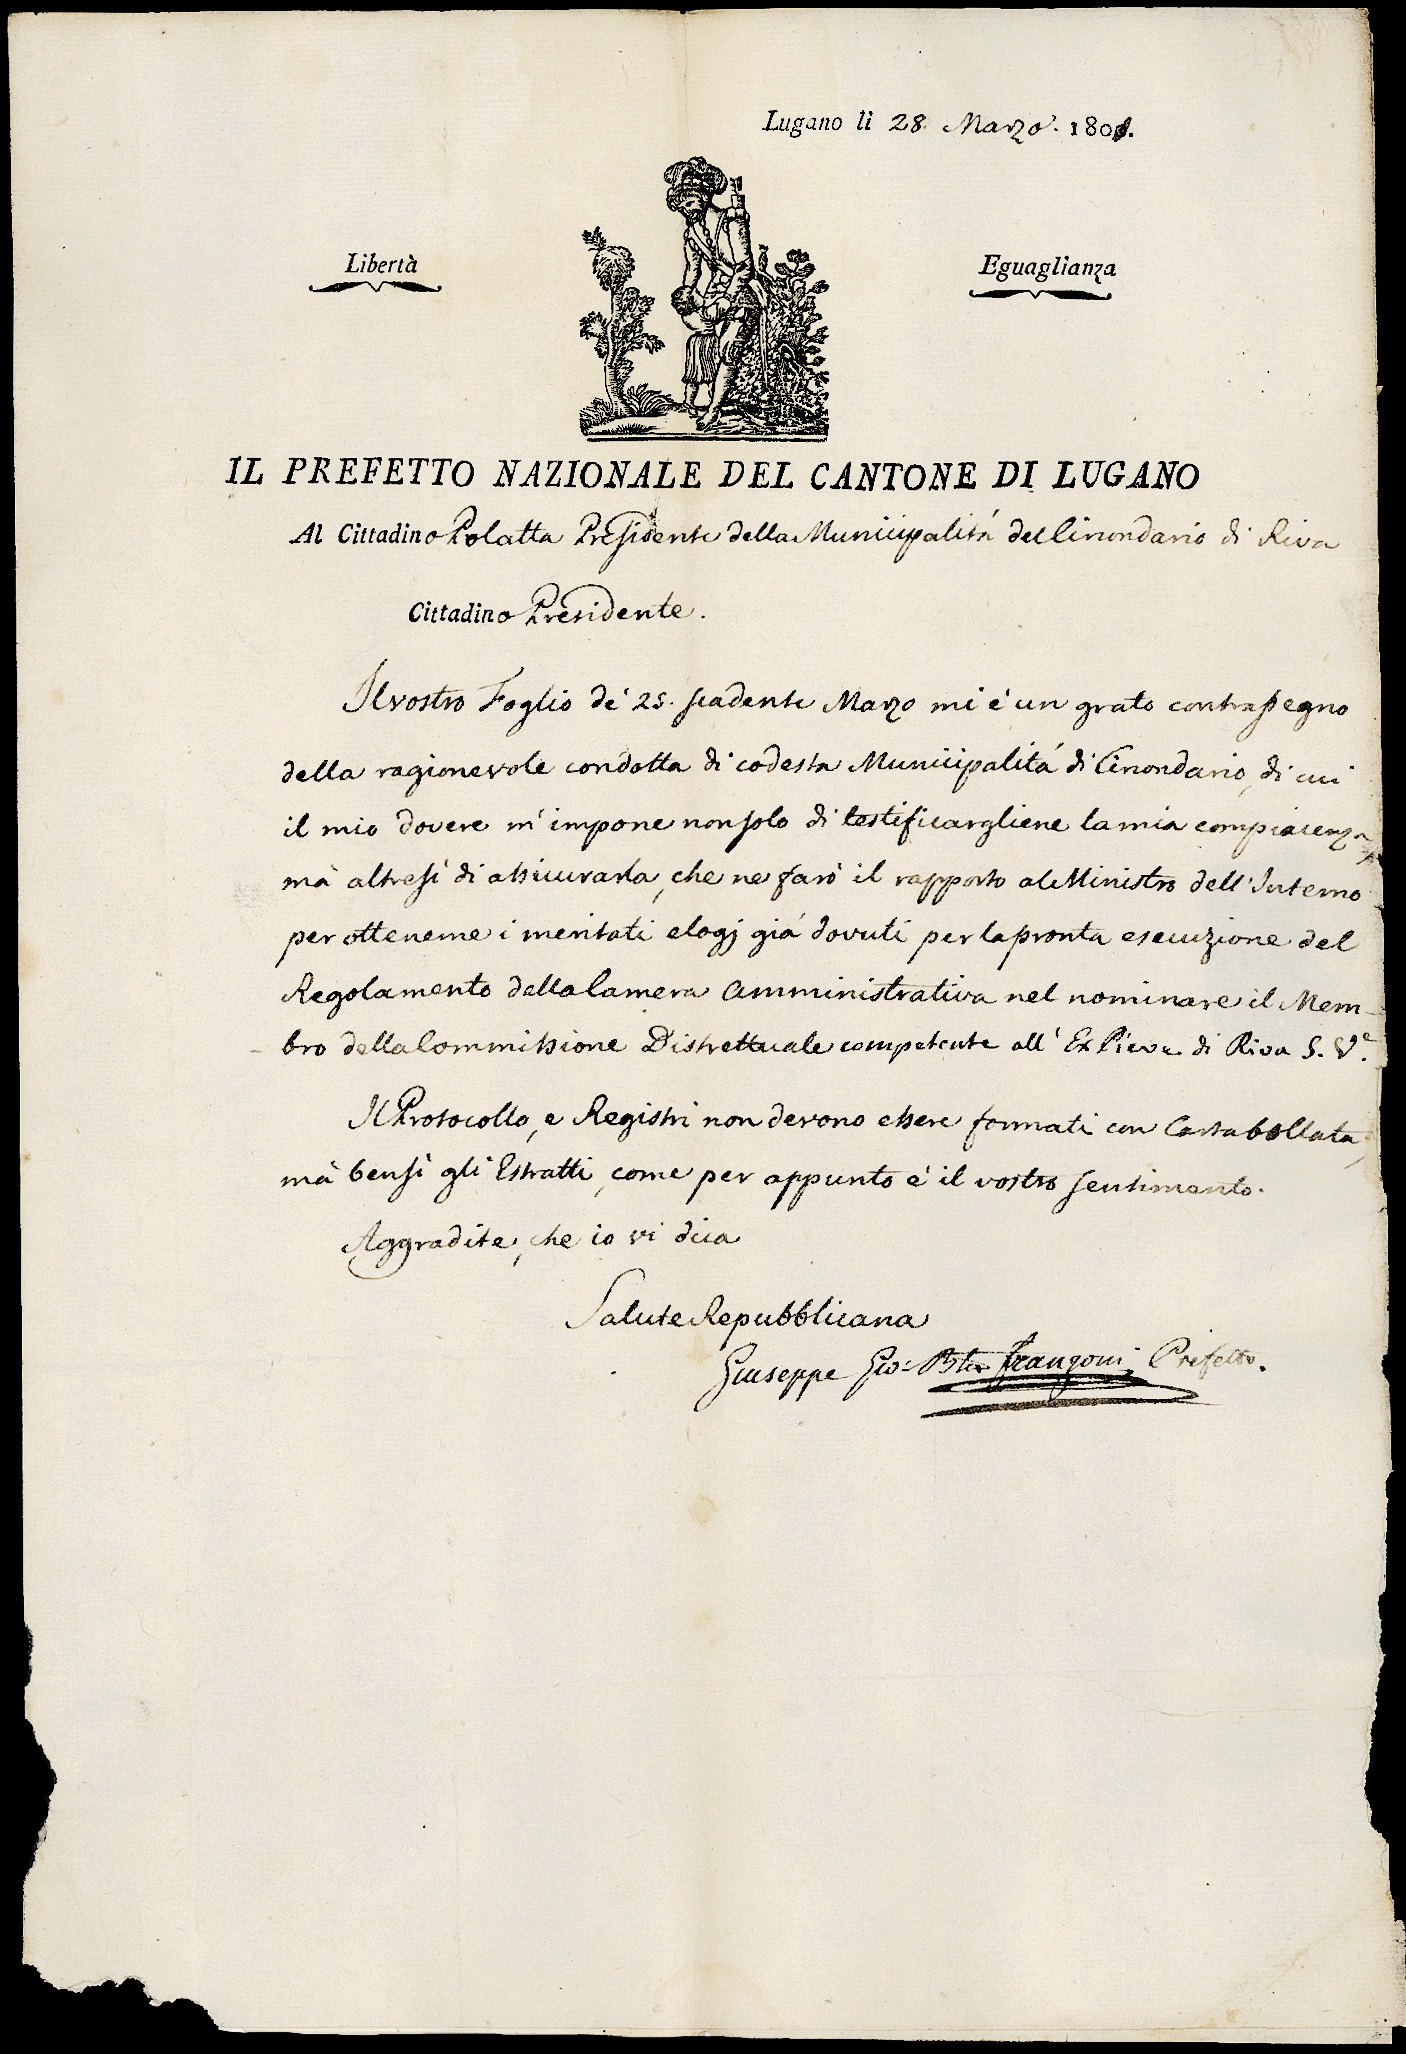 Lugano li 28. Marzo. 1801.
Libertà
Eguaglianza
IL PREFETTO NAZIONALE DEL CANTONE DI LUGANO
Al Cittadino Polatta Presidente della Municipalitá del Circondario di Riva
Cittadino Presidente.
Il vostro Foglio de' 25. scadente Marzo mi è un grato contrasegno
della ragionevole condotta di codesta Municipalitá di Circondario, di cui
il mio dovere m'impone non solo di testificargliene la mia compiacenza
mà altresì di assicurarla, che ne farò il rapporto al Ministro dell'Interno
per ottenerne i meritati elogj giá dovuti per la pronta esecuzione del
Regolamento della Camera Amministrativa nel nominare il Mem-
bro della Commissione Distrettuale competente all' Ex Pieve di Riva S. V.e
Il Protocollo, e Registri non devono essere formati con Carta bollata,
mà bensì gli Estratti, come per appunto è il vostro sentimento.
Aggradite, che io vi dica
Salute Repubblicana
Giuseppe Gio: Bta Franzoni Prefetto.